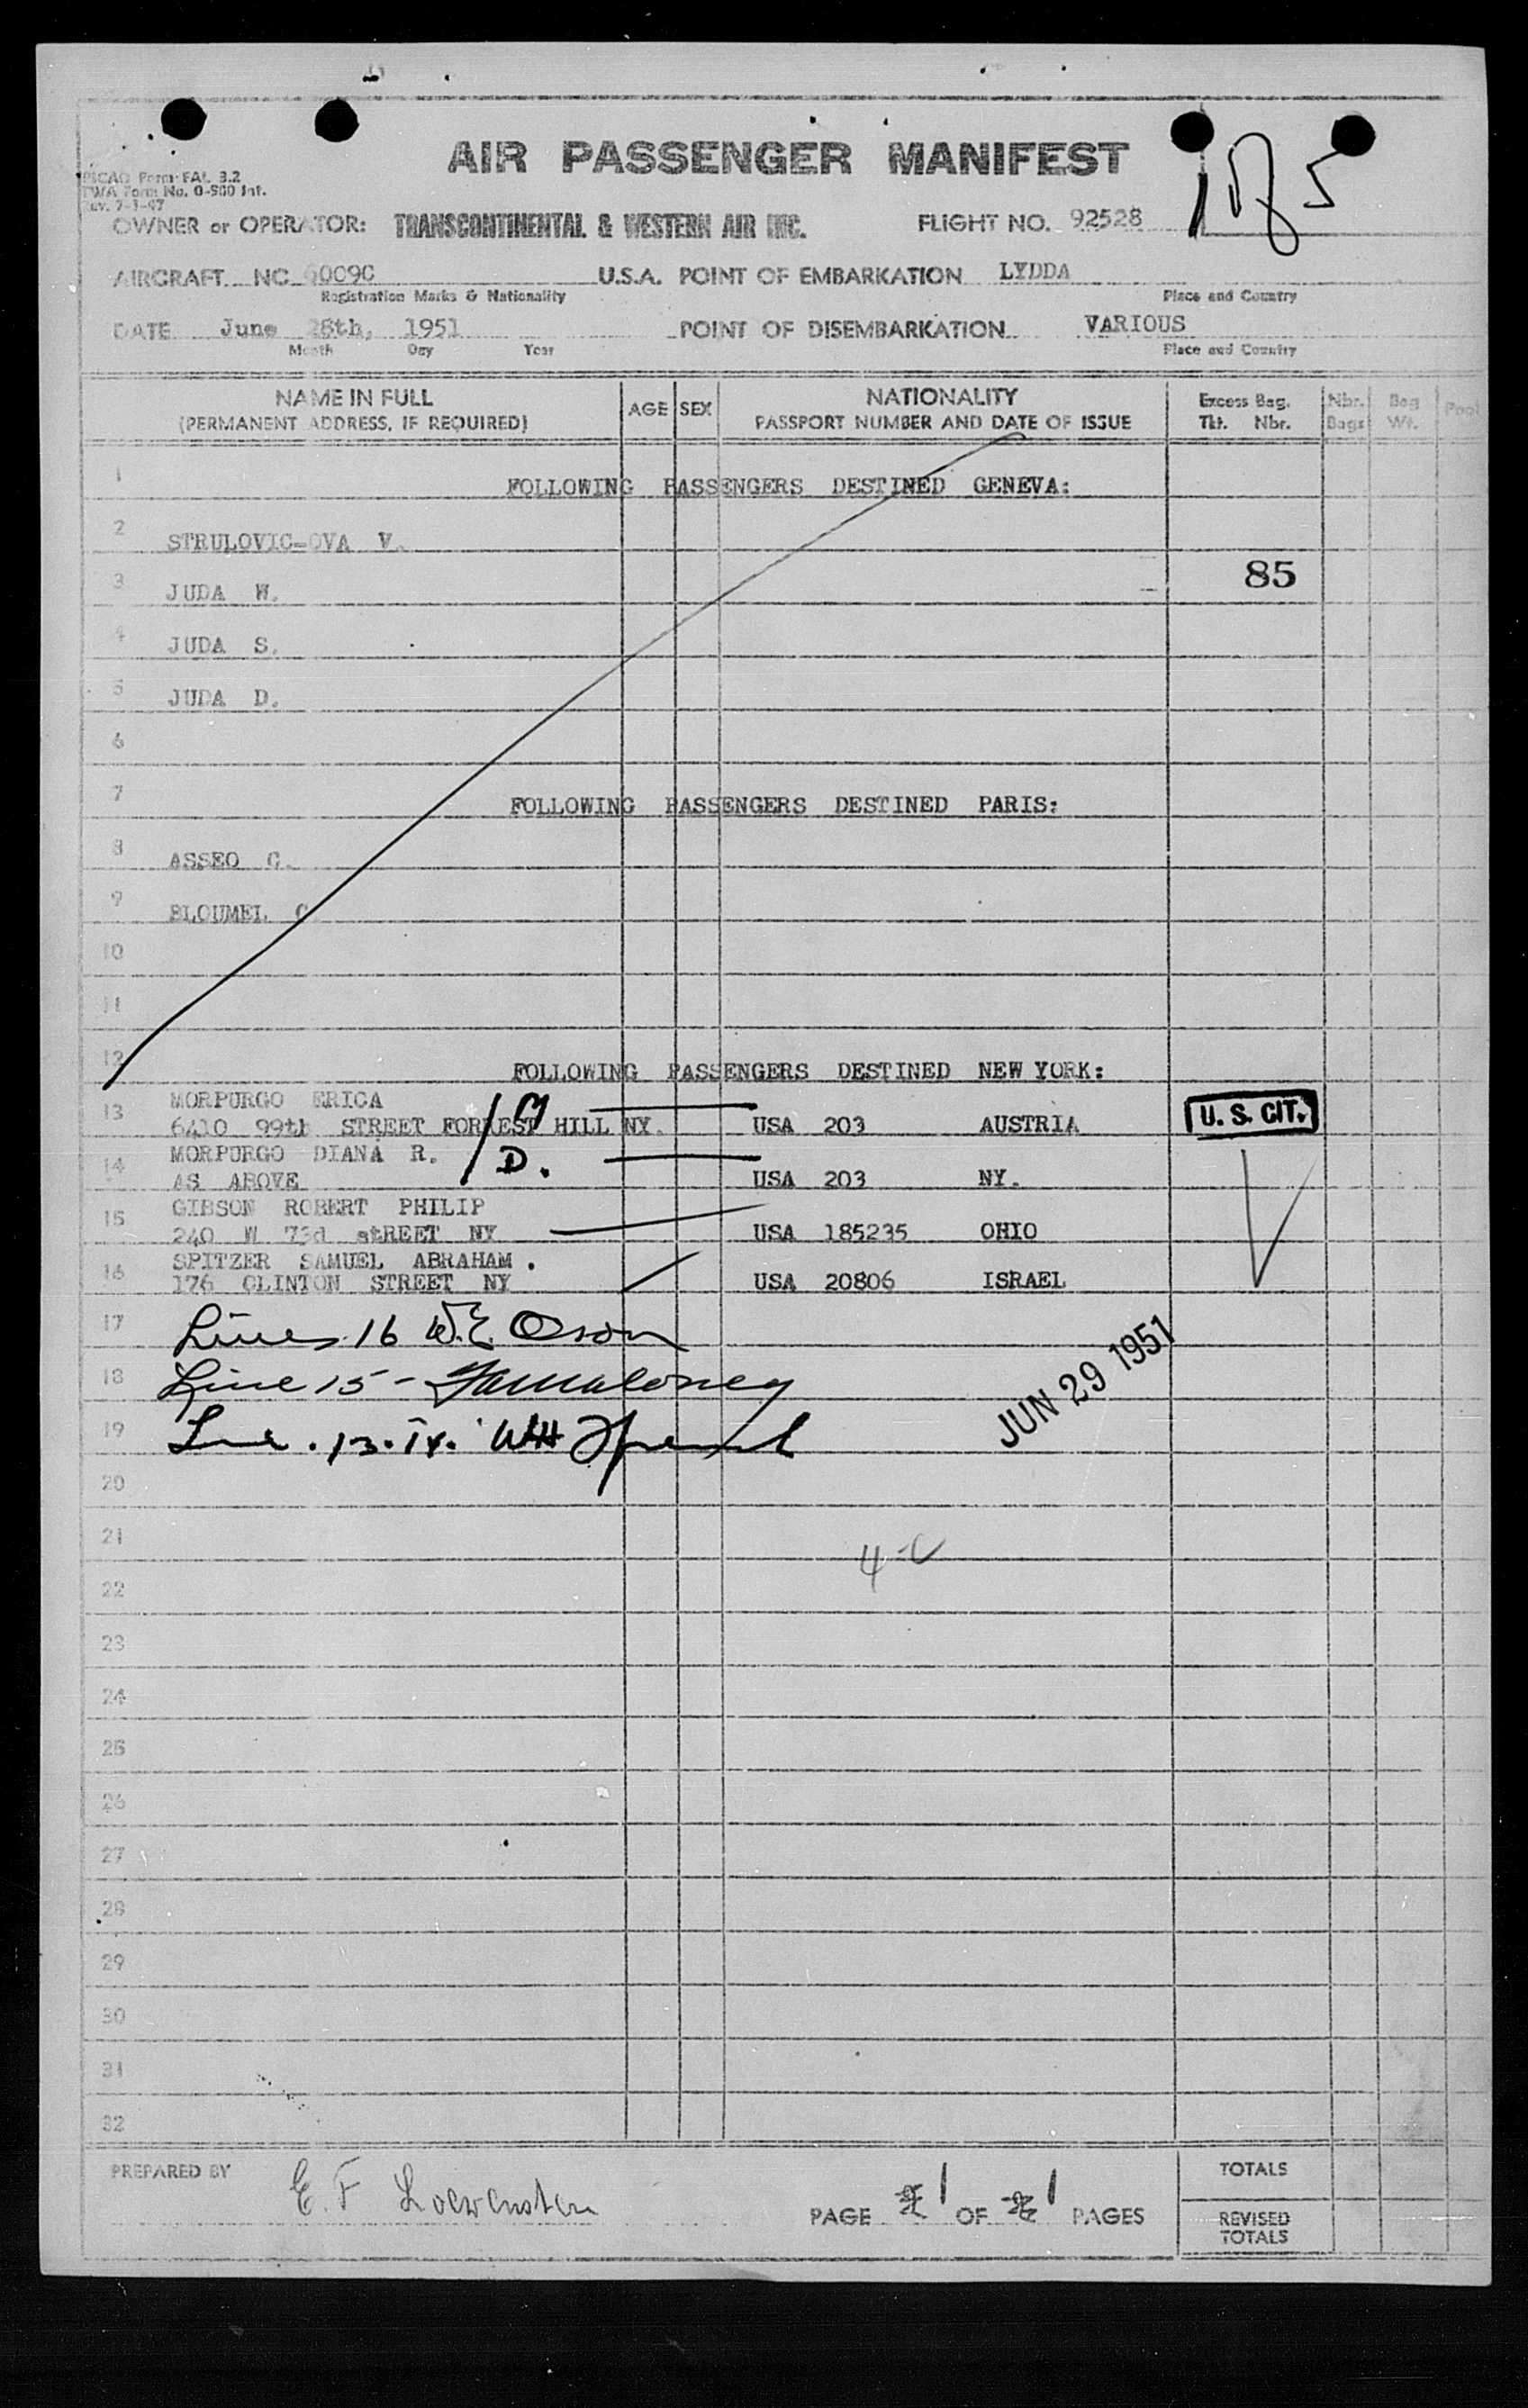 AIR PASSENGER MANIFEST
PICAO Form FAL 3.2
TWA Form No. 0-960 Int.
Rev. 7-1-47
OWNER or OPERATOR: TRANSCONTINENTAL & WESTERN AIR INC. FLIGHT NO. 92528
AIRCRAFT NC 6009C U.S.A. POINT OF EMBARKATION LYDDA
Registration Marks & Nationality Place and Country
DATE June 28th, 1951 POINT OF DISEMBARKATION VARIOUS
Month Day Year Place and Country
NAME IN FULL AGE SEX NATIONALITY Excess Bag. Nbr. Bag Pool
(PERMANENT ADDRESS, IF REQUIRED) PASSPORT NUMBER AND DATE OF ISSUE Tkt. Nbr. Bags Wt.
1 FOLLOWING PASSENGERS DESTINED GENEVA:
2 STRULOVIC-OVA V.
3 JUDA W. 85
4 JUDA S.
5 JUDA D.
6
7 FOLLOWING PASSENGERS DESTINED PARIS:
8 ASSEO C.
9 BLOUMEL C
10
11
12 FOLLOWING PASSENGERS DESTINED NEW YORK:
MORPURGO ERICA
13 6410 99th STREET FORREST HILL NY. USA 203 AUSTRIA U. S. CIT.
MORPURGO DIANA R. D.
14 AS ABOVE USA 203 NY.
GIBSON ROBERT PHILIP
15 240 W 73d stREET NY USA 185235 OHIO
SPITZER SAMUEL ABRAHAM.
16 176 CLINTON STREET NY USA 20806 ISRAEL
17 Lines 16 W.E. Olson
18 Line 15 -
JUN 29 1951
19 Line . 13. 14. WH
20
21 4-C
22
23
24
25
26
27
28
29
30
31
32
PREPARED BY E. F Loewenstein PAGE 1 OF 1 PAGES TOTALS
REVISED
TOTALS